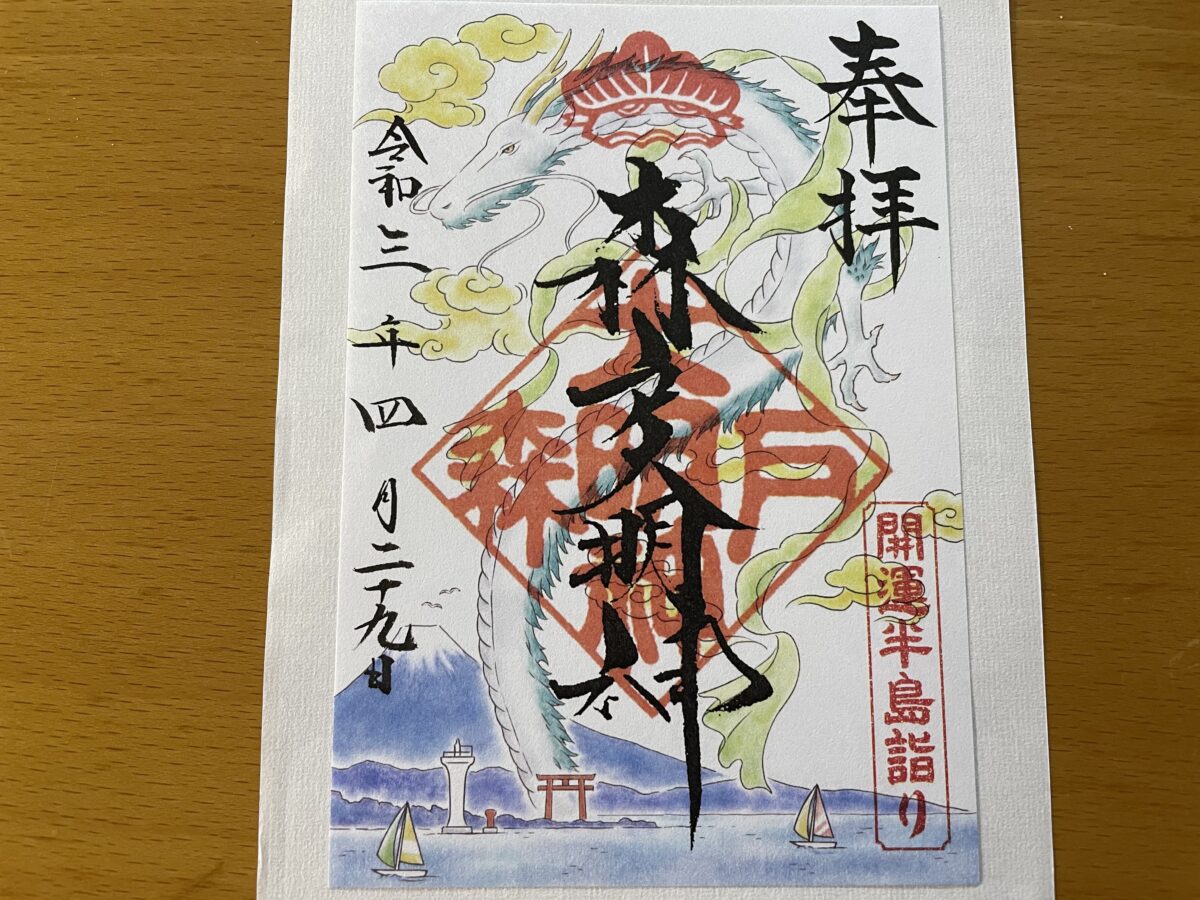 奉拝
開運半島詣り
森戸大明神
令和三年四月二十九日